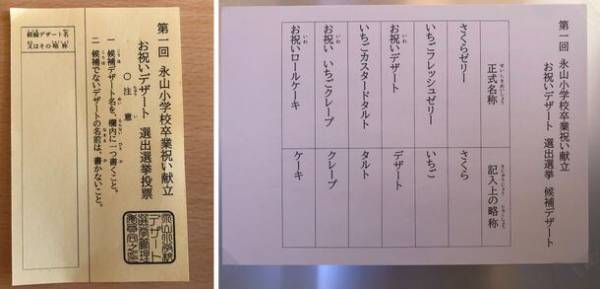 第一回 永山小学校卒業祝い献立
お祝いデザート 選出選挙投票
○注意
一 候補デザート名を、欄内に一つ書くこと。
二 候補でないデザートの名前は、書かないこと。
候補デザート名
又はその略称
永山小学校
デザート
選挙管理
第一回 永山小学校卒業祝い献立
お祝いデザート 選出選挙 候補デザート
正式名称 記入上の略称
さくらゼリー さくら
いちごフレッシュゼリー いちご
お祝いデザート デザート
いちごカスタードタルト タルト
お祝い いちごクレープ クレープ
お祝いロールケーキ ケーキ